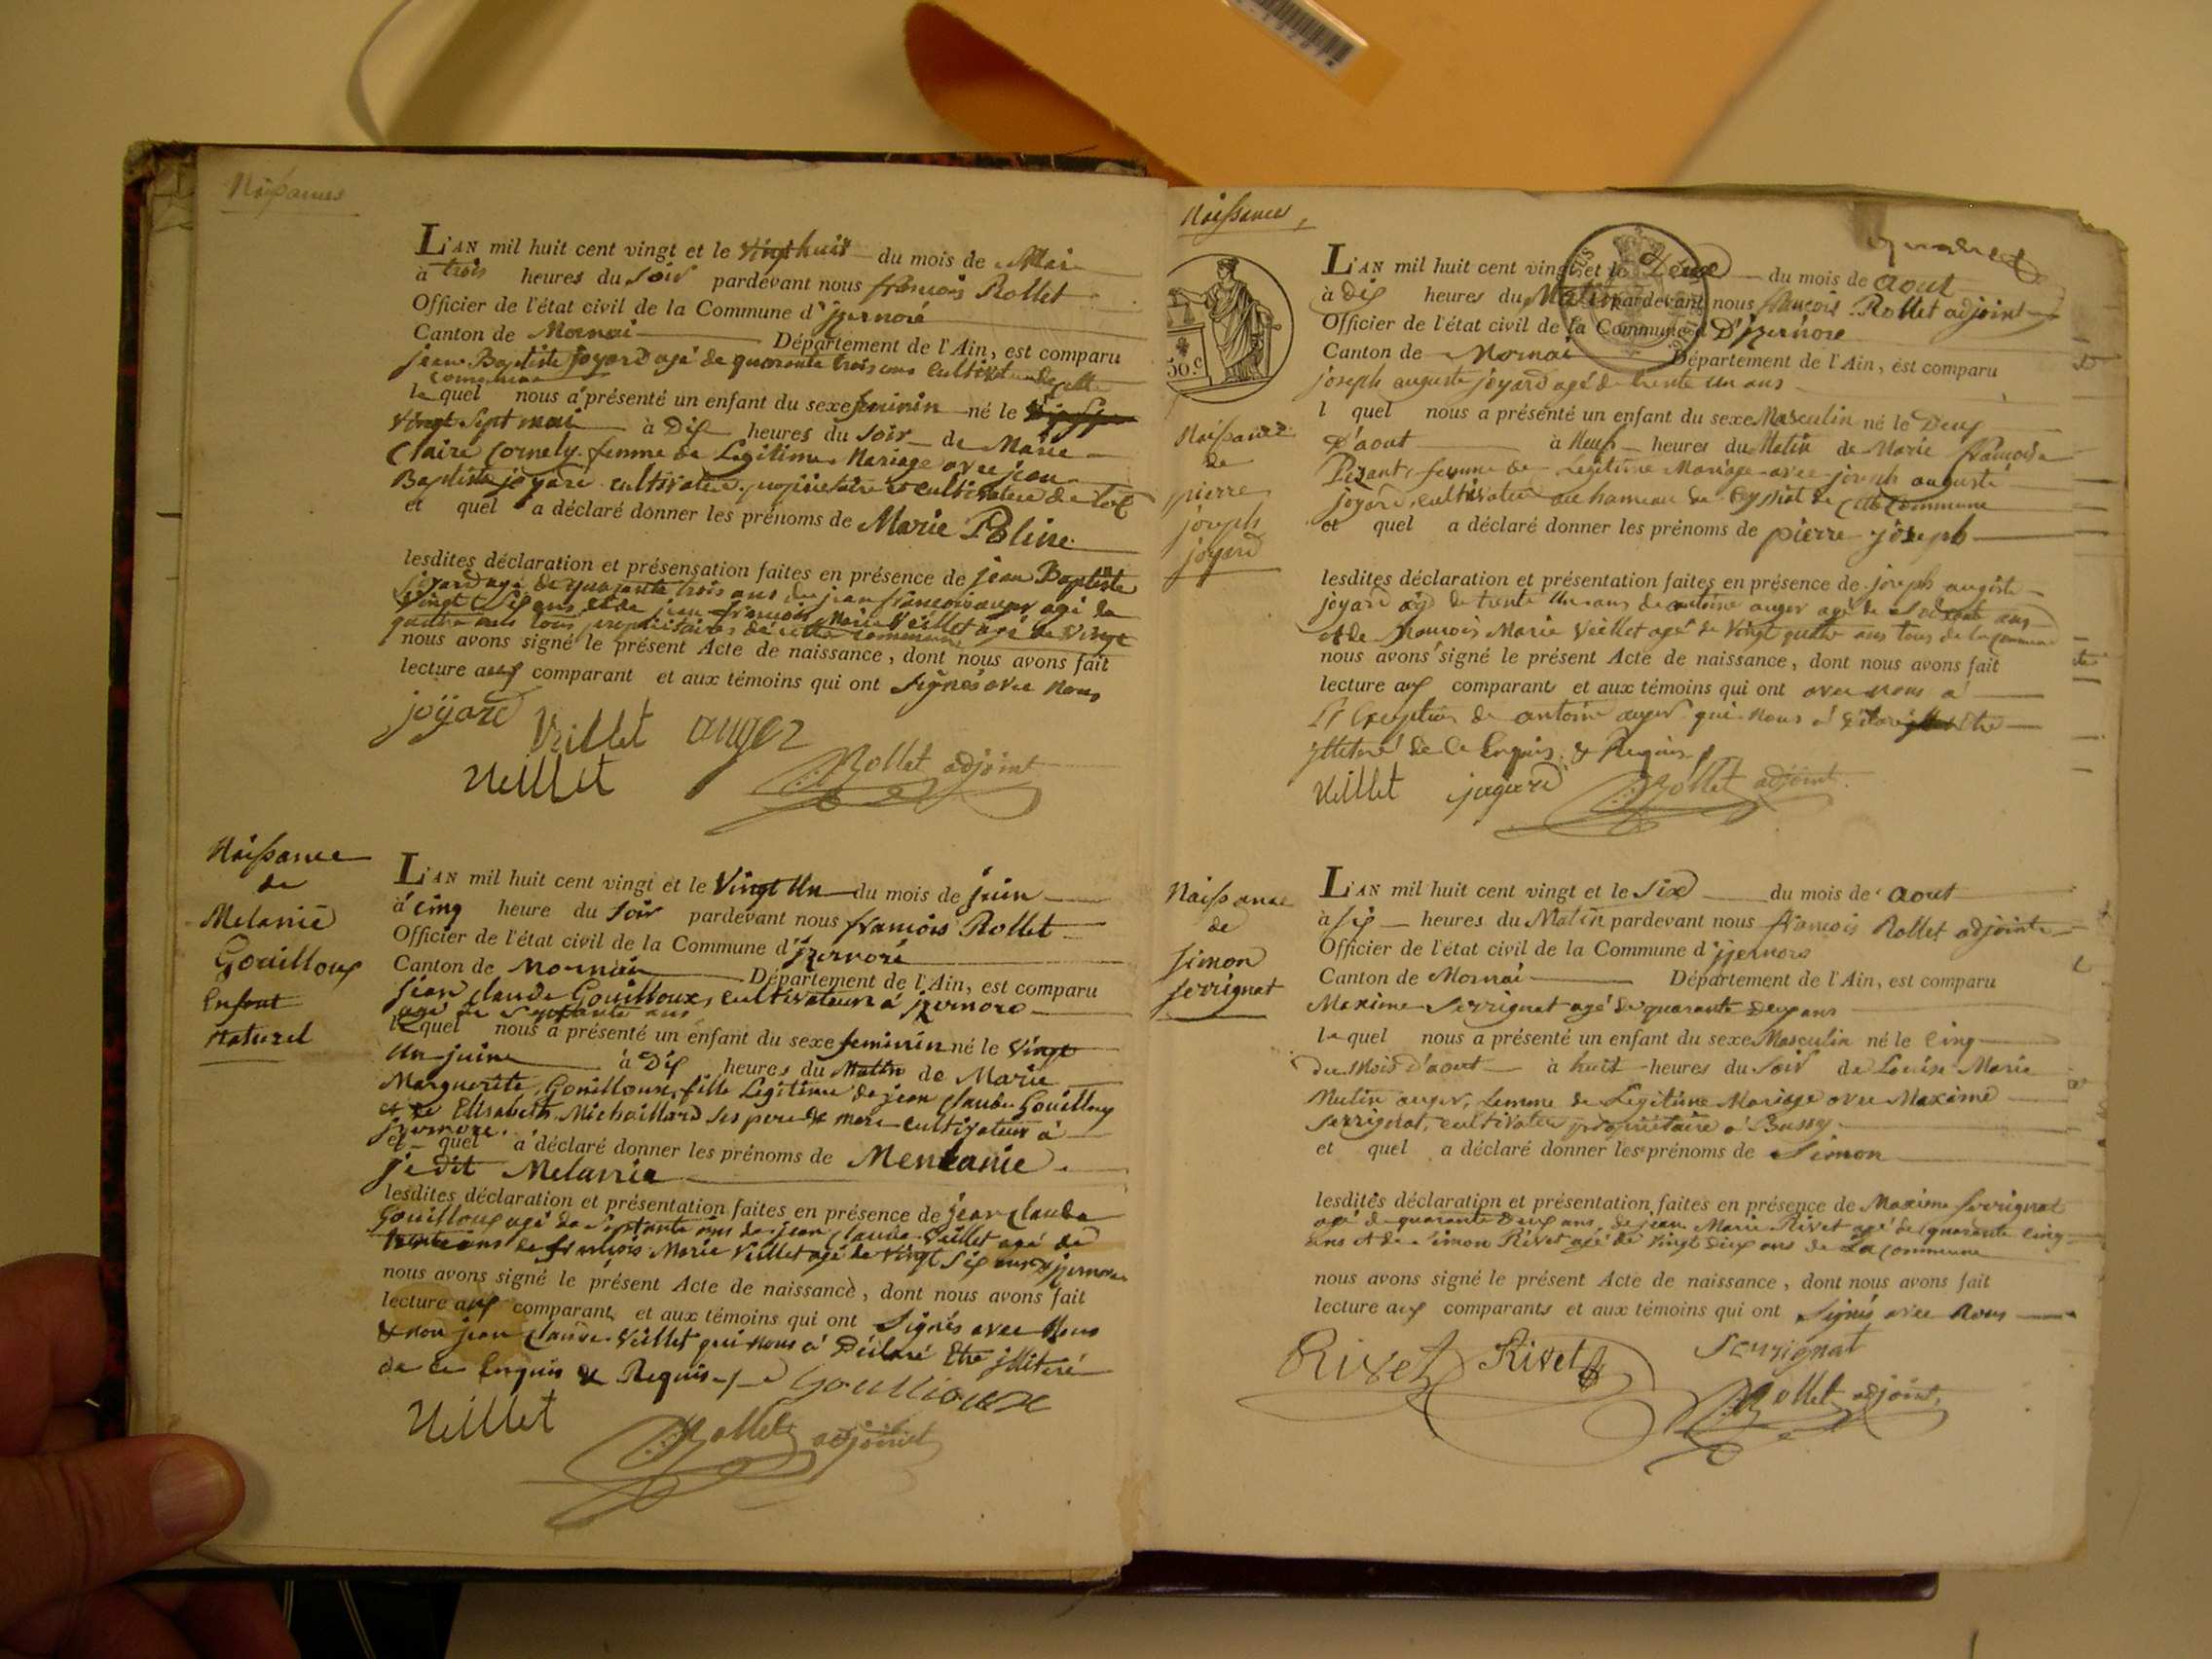 Naissances
L'AN mil huit cent vingt et le vingt huit du mois de Mai
à trois heures du soir pardevant nous françois Rollet
Officier de l'état civil de la Commune d'izernore
Canton de Mornai Département de l'Ain, est comparu
jean Baptiste joyard agé de quarante trois ans cultivateur de cette
commune
lequel nous a présenté un enfant du sexe feminin né le
vingt sept mai à Dix heures du soir de Marie
Claire Cornely femme de Legitime Mariage avec jean
Baptiste joyard cultivateur, propriétaire et cultivateur de
et quel a déclaré donner les prénoms de Marie Poline
lesdites déclaration et présensation faites en présence de jean Baptiste
joyard agé de quarante trois ans de jean françois auger agé de
vingt six ans et de jean françois Marie Veillet agé de vingt
quatre ans tous propriétaires de cette commune
nous avons signé le présent Acte de naissance, dont nous avons fait
lecture aux comparant et aux témoins qui ont signés avec nous
joyard Veillet auger
Veillet Rollet adjoint
Naissance
de
Melanie
Gouilloux
Enfant
Naturel
L'AN mil huit cent vingt et le Vingt Un du mois de juin
à cinq heure du soir pardevant nous françois Rollet
Officier de l'état civil de la Commune d'izernore
Canton de Mornai Département de l'Ain, est comparu
jean claude Gouilloux, cultivateur à izernore
agé de septante ans
lequel nous a présenté un enfant du sexe feminin né le vingt
un juin à Dix heures du Matin de Marie
Marguerite Gouilloux, fille Legitime de jean claude Gouilloux
et de Elisabeth Michaillard ses pere & mere cultivateur à
izernore.
et quel a déclaré donner les prénoms de Menlanie
je dit Melanie
lesdites déclaration et présentation faites en présence de jean claude
Gouilloux agé de septante ans de jean claude Veillet agé de
trente ans de françois Marie Veillet agé de vingt six ans d'izernore
nous avons signé le présent Acte de naissance, dont nous avons fait
lecture aux comparant et aux témoins qui ont signés avec nous
& non jean claude Veillet qui nous a Déclaré Etre illitéré
de ce Enquis & Requis Goullioux
Veillet Rollet adjoint
Naissances
50.c
L'AN mil huit cent vingt et le Deux du mois de aout
à Dix heures du Matin pardevant nous françois Rollet adjoint
Officier de l'état civil de la Commune D'izernore
Canton de Mornai Département de l'Ain, est comparu
joseph auguste joyard agé de trente un ans
l quel nous a présenté un enfant du sexe Masculin né le Deux
D'aout à Neuf heures du Matin de Marie françoise
femme de Legitime Mariage avec joseph auguste
joyard, cultivateur au hameau de Ceyssiat de cette Commune
et quel a déclaré donner les prénoms de pierre joseph
Naissance
de
pierre
joseph
joyard
lesdites déclaration et présentation faites en présence de joseph augiste
joyard agé de trente un ans de antoine auger agé de ans
et de françois Marie Veillet agé de vingt quatre ans tous de la commune
nous avons signé le présent Acte de naissance, dont nous avons fait
lecture aux comparants et aux témoins qui ont avec nous a
L'Exception de antoine auger qui nous a déclaré Etre
illiteré de ce Enquis & Requis
Veillet joyard Rollet adjoint
Naissance
de
Simon
Serrignat
L'AN mil huit cent vingt et le Six du mois de aout
à six heures du Matin pardevant nous françois Rollet adjoint
Officier de l'état civil de la Commune d'izernore
Canton de Mornai Département de l'Ain, est comparu
Maxime Serrignat agé de quarante deux ans
lequel nous a présenté un enfant du sexe Masculin né le Cinq
du Mois d'aout à huit heures du Soir de Louise Marie
auger, femme de Legitime Mariage avec Maxime
Serrignat, cultivateur propriétaire à Bussy
et quel a déclaré donner les prénoms de Simon
lesdites déclaration et présentation faites en présence de Maxime Serrignat
agé de quarante deux ans, de jean Marie Rivet agé de quarante cinq
ans et de Simon Rivet agé de vingt deux ans de La commune
nous avons signé le présent Acte de naissance, dont nous avons fait
lecture aux comparants et aux témoins qui ont signés avec nous
Rivet Rivet Serrignat
Rollet adjoint